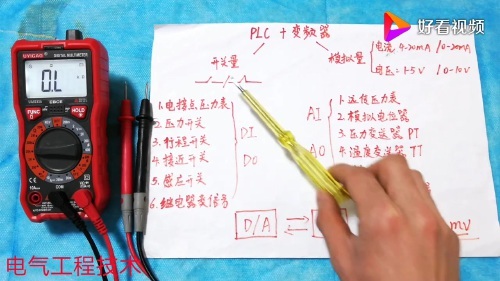 好看视频
PLC + 变频器
开关量
模拟量
电流 4-20mA / 0-20mA
电压 1-5V / 0-10V
1. 电接点压力表
2. 压力开关
3. 行程开关
4. 接近开关
5. 感应开关
6. 继电器
DI
DO
AI
AO
1. 远传压力表
2. 模拟电位器
3. 压力变送器 PT
4. 温度变送器 TT
D/A
mV
0.L
HOLD
FUNC
COM
电气工程技术